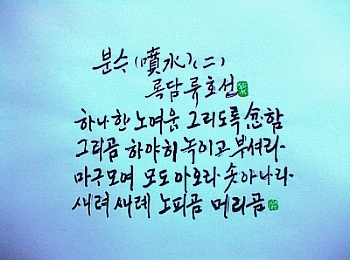 분수(噴水)(二)
록담 류호섭
하나 한 노여움 그리도록 念함
그리곰 하야히 녹이고 부셔라
마구 모여 모도아 오라 솟아나라
새려 새례 노피곰 머리곰